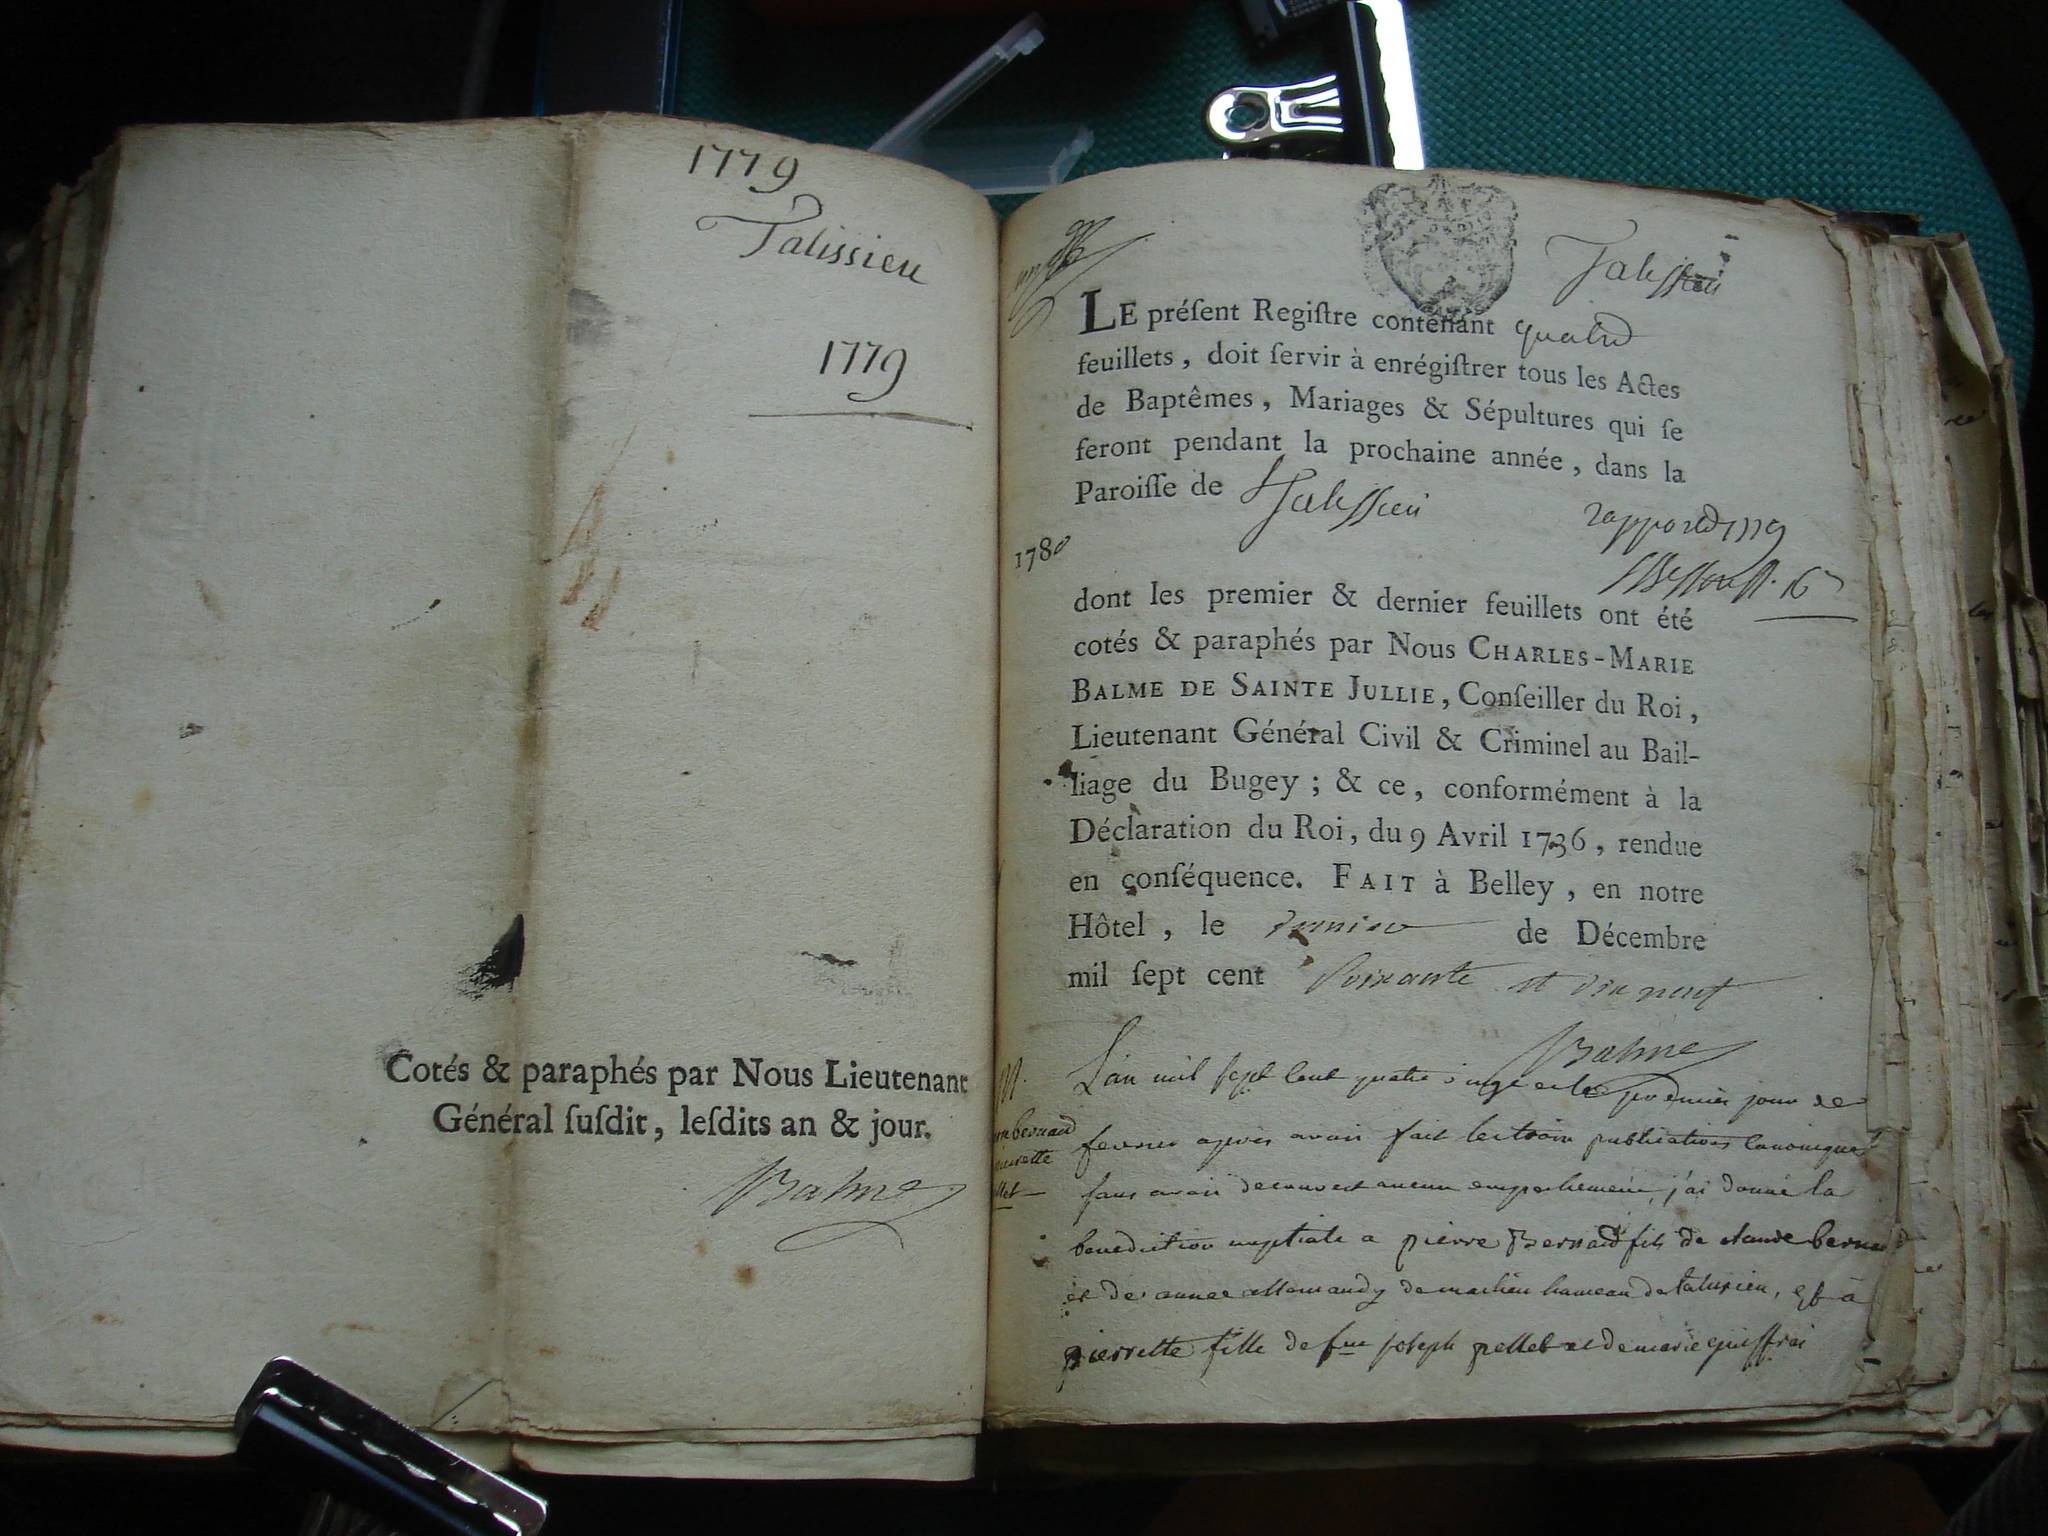 1779
Talissieu
1779
Cotés & paraphés par Nous Lieutenant
Général ſuſdit, leſdits an & jour.
Balme
Talissieu
LE préſent Regiſtre contenant quatre
feuillets, doit ſervir à enrégiſtrer tous les Actes
de Baptêmes, Mariages & Sépultures qui ſe
feront pendant la prochaine année, dans la
Paroiſſe de Talissieu
rapporté 1779
1780
dont les premier & dernier feuillets ont été
cotés & paraphés par Nous CHARLES-MARIE
BALME DE SAINTE JULLIE, Conſeiller du Roi,
Lieutenant Général Civil & Criminel au Bail-
liage du Bugey; & ce, conformément à la
Déclaration du Roi, du 9 Avril 1736, rendue
en conſéquence. FAIT à Belley, en notre
Hôtel, le dernier de Décembre
mil ſept cent soixante et dix neuf
Balme
M.
bernard
pierrette
L'an mil sept cent quatre vingt et le premier jour de
fevrier apres avoir fait les trois publications canoniques
sans avoir decouvert aucun empechement, j'ai donné la
benediction nuptiale a pierre Bernard fils de claude bernard
et de annee allemandy de marlieu hameau de talissieu, et à
pierrette fille de feu joseph pellet et de marie guiffrai